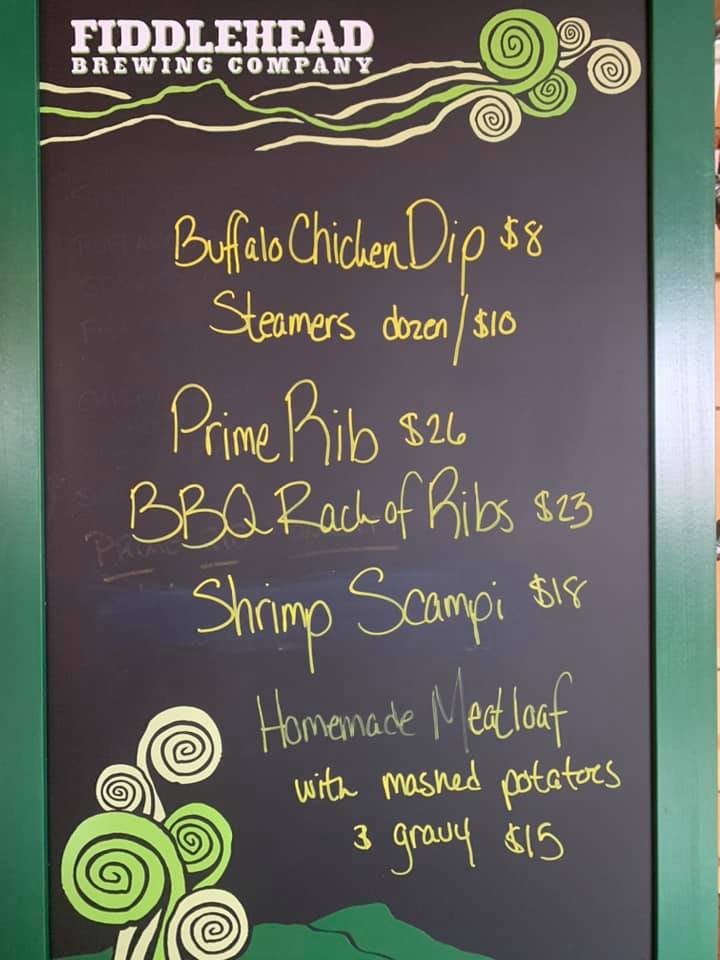 FIDDLEHEAD
BREWING COMPANY
Buffalo Chicken Dip $8
Steamers dozen/$10
Prime Rib $26
BBQ Rack of Ribs $23
PRIME
Shrimp Scampi $18
Homemade Meatloaf
with mashed potatoes
& gravy $15